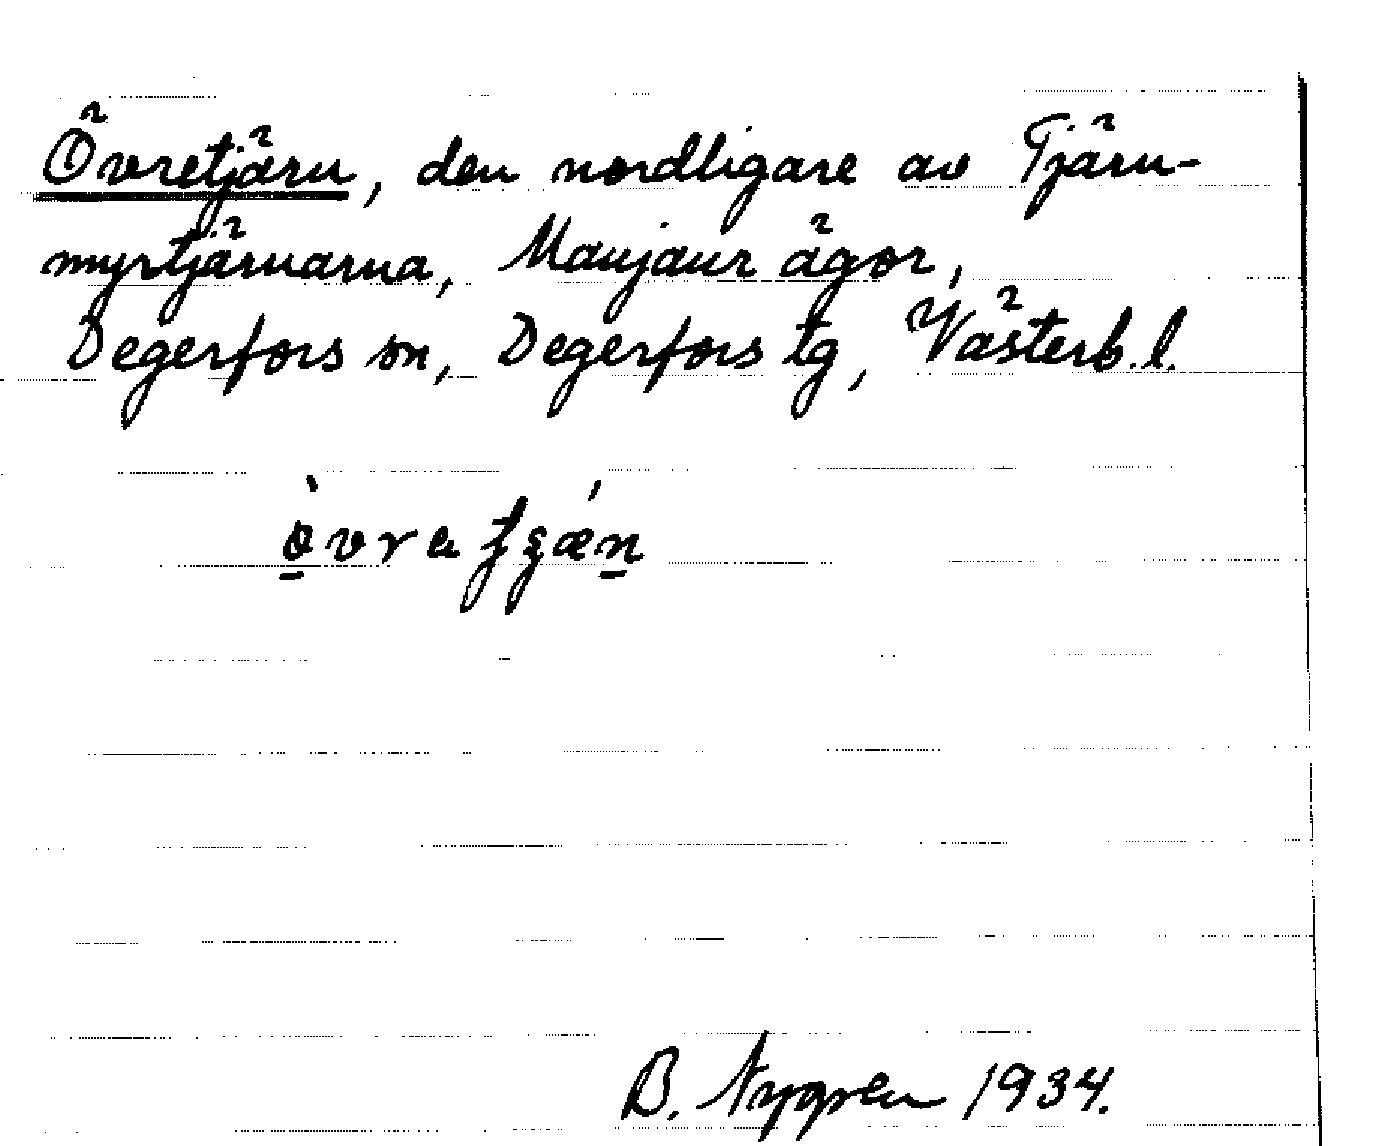 Övretjärn, den nordligare av Tjärn-
myrtjärnarna, Manjaur ägor,
Degerfors sn, Degerfors tg, Västerb. l.
B. Nygren 1934.